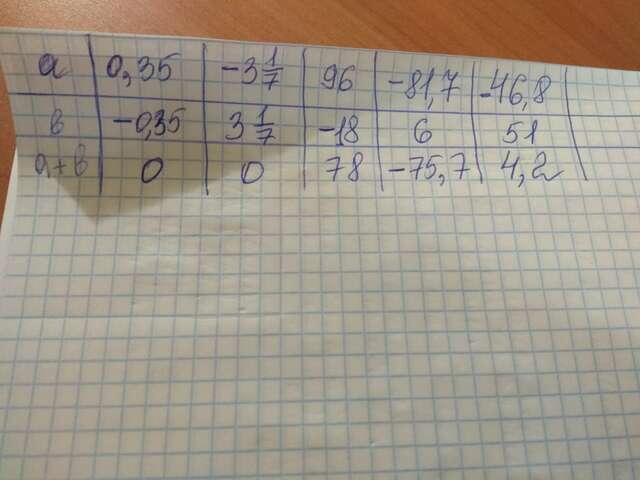 a 0,35 -3 1/7 96 -81,7 -46,8
в -0,35 3 1/7 -18 6 51
a+в 0 0 78 -75,7 4,2